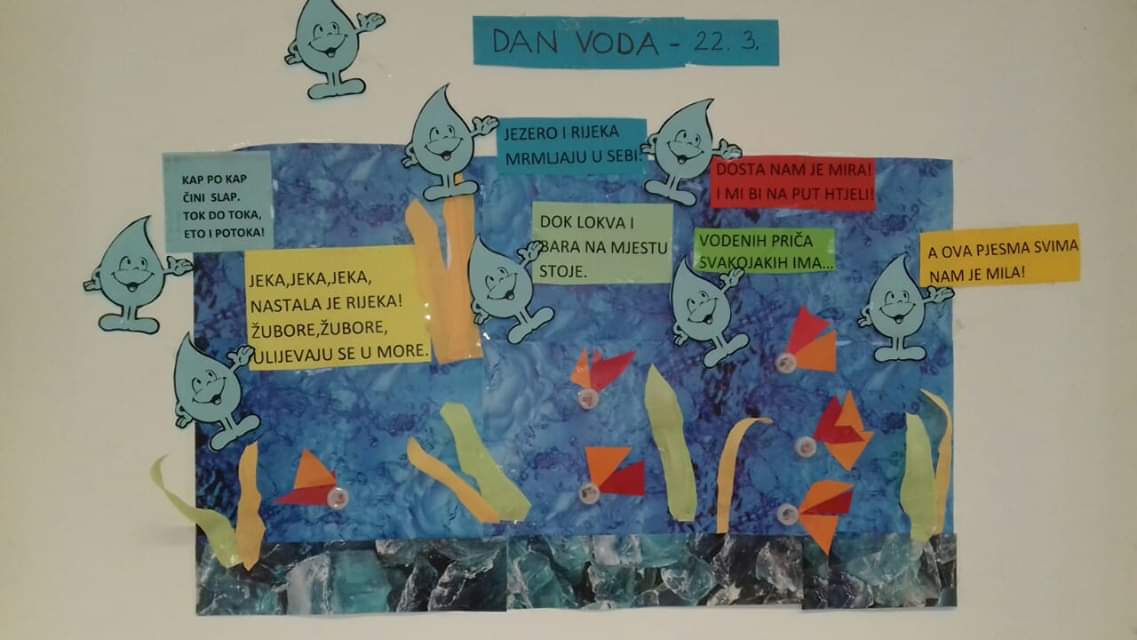 DAN VODA - 22. 3.
KAP PO KAP
ČINI SLAP.
TOK DO TOKA,
ETO I POTOKA!
JEKA,JEKA,JEKA,
NASTALA JE RIJEKA!
ŽUBORE,ŽUBORE,
ULIJEVAJU SE U MORE.
JEZERO I RIJEKA
MRMLJAJU U SEBI:
DOK LOKVA I
BARA NA MJESTU
STOJE.
DOSTA NAM JE MIRA!
I MI BI NA PUT HTJELI!
VODENIH PRIČA
SVAKOJAKIH IMA...
A OVA PJESMA SVIMA
NAM JE MILA!